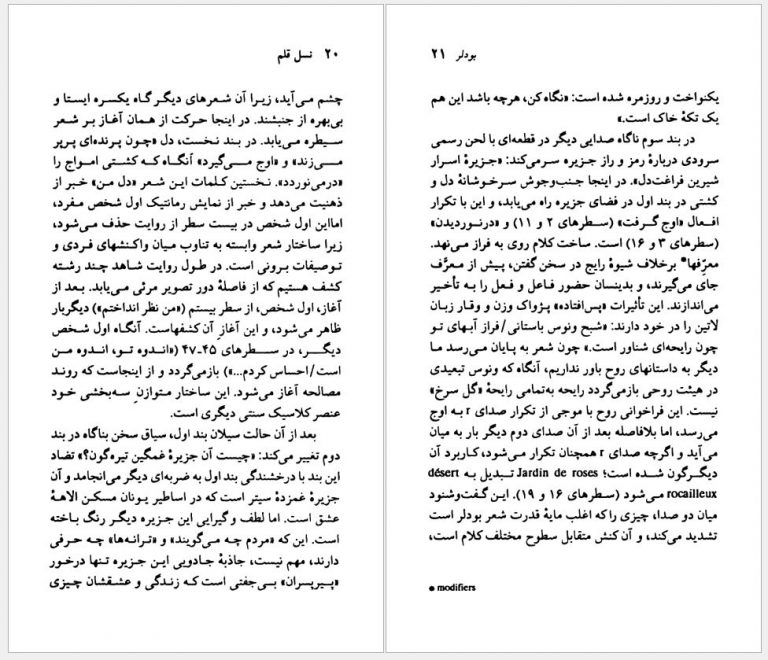 ۲۰ نسل قلم
چشم می‌آید، زیرا آن شعرهای دیگر گاه یکسره ایستا و
بی‌بهره از جنبشند. در اینجا حرکت از همان آغاز بر شعر
سیطره می‌یابد. در بند نخست، دل «چون پرنده‌ای پرپر
می‌زند» و «اوج می‌گیرد» آنگاه که کشتی امواج را
«درمی‌نوردد». نخستین کلمات این شعر «دل من» خبر از
ذهنیت می‌دهد و خبر از نمایش رمانتیک اول شخص مفرد،
امااین اول شخص در بیست سطر از روایت حذف می‌شود،
زیرا ساختار شعر وابسته به تناوب میان واکنشهای فردی و
توصیفات برونی است. در طول روایت شاهد چند رشته
کشف هستیم که از فاصلهٔ دور تصویر مرئی می‌یابد. بعد از
آغاز، اول شخص، از سطر بیستم («من نظر انداختم») دیگربار
ظاهر می‌شود، و این آغازِ آن کشفهاست. آنگاه اول شخص
دیگر، در سطرهای ۴۵ـ۴۷ («اندوه تو، اندوه من
است/احساس کردم...») بازمی‌گردد و از اینجاست که روند
مصالحه آغاز می‌شود. این ساختار متوازنِ سه‌بخشی خود
عنصر کلاسیک سنتی دیگری است.
بعد از آن حالت سیلان بند اول، سیاق سخن بناگاه در بند
دوم تغییر می‌کند: «چیست آن جزیرهٔ غمگین تیره‌گون؟» تضاد
این بند با درخشندگی بند اول به ضربه‌ای دیگر می‌انجامد و آن
جزیرهٔ غمزدهٔ سیتر است که در اساطیر یونان مسکن الاههٔ
عشق است. اما لطف و گیرایی این جزیره دیگر رنگ باخته
است. این که «مردم چه می‌گویند» و «ترانه‌ها» چه حرفی
دارند، مهم نیست، جاذبهٔ جادویی این جزیره تنها درخور
«پیرپسران» بی‌جفتی است که زندگی و عشقشان چیزی
بودلر ۲۱
یکنواخت و روزمره شده است: «نگاه کن، هرچه باشد این هم
یک تکهٔ خاک است.»
در بند سوم ناگاه صدایی دیگر در قطعه‌ای با لحن رسمی
سرودی دربارهٔ رمز و راز جزیره سرمی‌کند: «جزیرهٔ اسرار
شیرین فراغت‌دل». در اینجا جنب‌وجوش سرخوشانهٔ دل و
کشتی در بند اول در فضای جزیره راه می‌یابد، و این با تکرار
افعال «اوج گرفت» (سطرهای ۲ و ۱۱) و «درنوردیدن»
(سطرهای ۳ و ۱۶) است. ساخت کلام روی به فراز می‌نهد.
معرِّفها• برخلاف شیوهٔ رایج در سخن گفتن، پیش از معرَّف
جای می‌گیرند، و بدینسان حضور فاعل و فعل را به تأخیر
می‌اندازند. این تأثیرات «پس‌افتاده» پژواک وزن و وقار زبان
لاتین را در خود دارند: «شبح ونوس باستانی/فراز آبهای تو
چون رایحه‌ای شناور است.» چون شعر به پایان می‌رسد ما
دیگر به داستانهای روح باور نداریم، آنگاه که ونوس تبعیدی
در هیئت روحی بازمی‌گردد رایحه به‌تمامی رایحهٔ «گل سرخ»
نیست. این فراخوانی روح با موجی از تکرار صدای r به اوج
می‌رسد، اما بلافاصله بعد از آن صدای دوم دیگر بار به میان
می‌آید و اگرچه صدای r همچنان تکرار می‌شود، کاربرد آن
دیگرگون شده است؛ Jardin de roses تبدیل به désert
rocailleux می‌شود (سطرهای ۱۶ و ۱۹). این گفت‌وشنود
میان دو صدا، چیزی را که اغلب مایهٔ قدرت شعر بودلر است
تشدید می‌کند، و آن کنش متقابل سطوح مختلف کلام است،
• modifiers